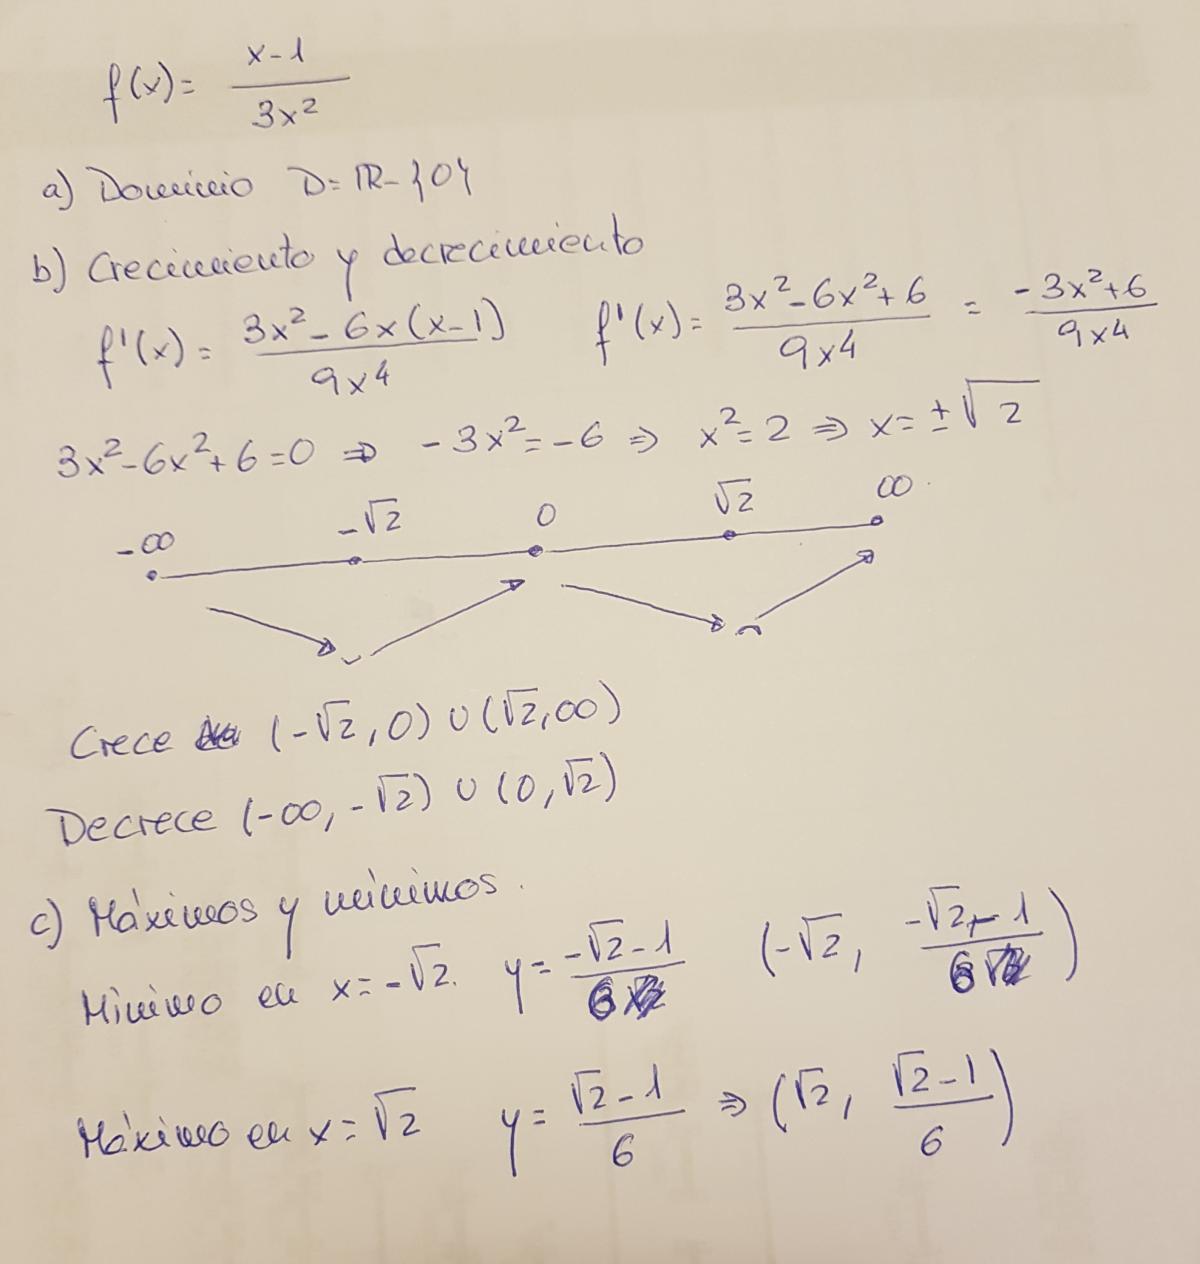 f(x) = (x-1)/(3x²)
a) Dominio D = ℝ - {0}
b) Crecimiento y decrecimiento
f'(x) = (3x² - 6x(x-1))/(9x⁴) f'(x) = (3x² - 6x² + 6)/(9x⁴) = (-3x² + 6)/(9x⁴)
3x² - 6x² + 6 = 0 ⇒ -3x² = -6 ⇒ x² = 2 ⇒ x = ±√2
-∞ -√2 0 √2 ∞
Crece (-√2, 0) ∪ (√2, ∞)
Decrece (-∞, -√2) ∪ (0, √2)
c) Máximos y mínimos.
Mínimo en x = -√2. y = (-√2 - 1)/6 (-√2, (-√2 - 1)/6)
Máximo en x = √2 y = (√2 - 1)/6 ⇒ (√2, (√2 - 1)/6)